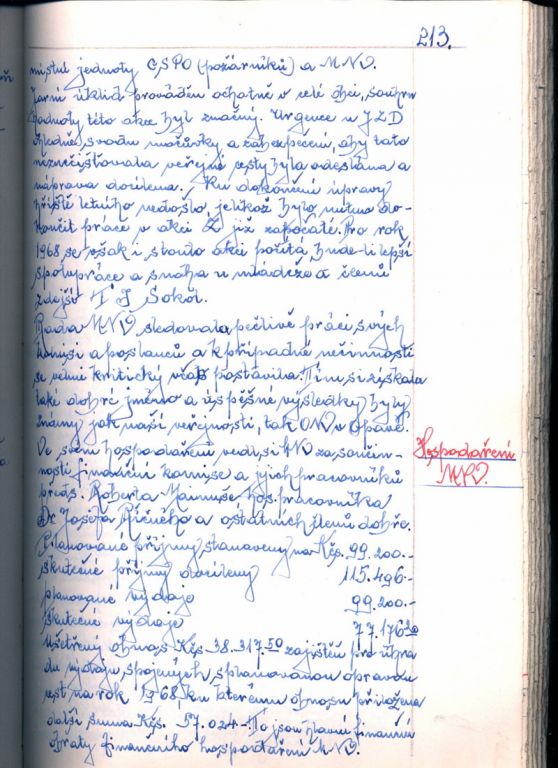 213.
místní jednoty ČSPO (požárníků) a MNV.
Jarní úklid prováděn ochotně v celé obci, souhrn
hodnoty této akce byl značný. Urgence u JZD
ohledně svodu močůvky a zabezpečení, aby tato
neznečišťovala veřejné cesty byla odeslána a
náprava docílena. Ku dokončení úpravy
hřiště letního nedošlo, jelikož bylo nutno do-
končit práce v akci Z již započaté. Pro rok
1968 se však i s touto akcí počítá, bude-li lepší
spolupráce a snaha u mládeže a členů
zdejší TJ Sokol.
Rada MNV sledovala pečlivě práci svých
komisí a poslanců a k případné nečinnosti
se velmi kriticky vždy postavila. Tím si získala
také dobré jméno a úspěšné výsledky byly
známy jak naší veřejnosti, tak ONV v Opavě.
Hospodaření
MNV.
Ve svém hospodaření vedl si MNV za součin-
nosti finanční komise a jejich pracovníků
předs. Roberta hos. pracovníka
Dr Josefa a ostatních členů dobře.
Plánované příjmy stanoveny na Kčs. 99.200.-
skutečné příjmy docíleny 115.496.-
plánované výdaje 99.200.-
skutečné výdaje 77.176 30
Ušetřený obnos Kčs 38.317.50 zajištěn pro úhra
du výdajů, spojených s plánovanou opravou
cest na rok 1968, ku kterému obnosu přiložena
další suma Kčs. 57.024.- To jsou hlavní finanční
obraty finančního hospodaření MNV.